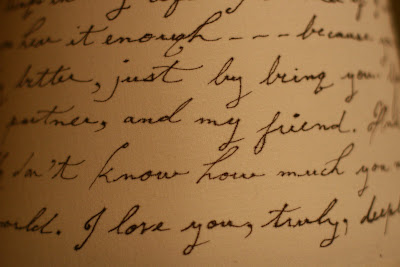 hear it enough - - - because
better, just by being you
partner, and my friend.
don't know how much you
world. I love you, truly, deepl